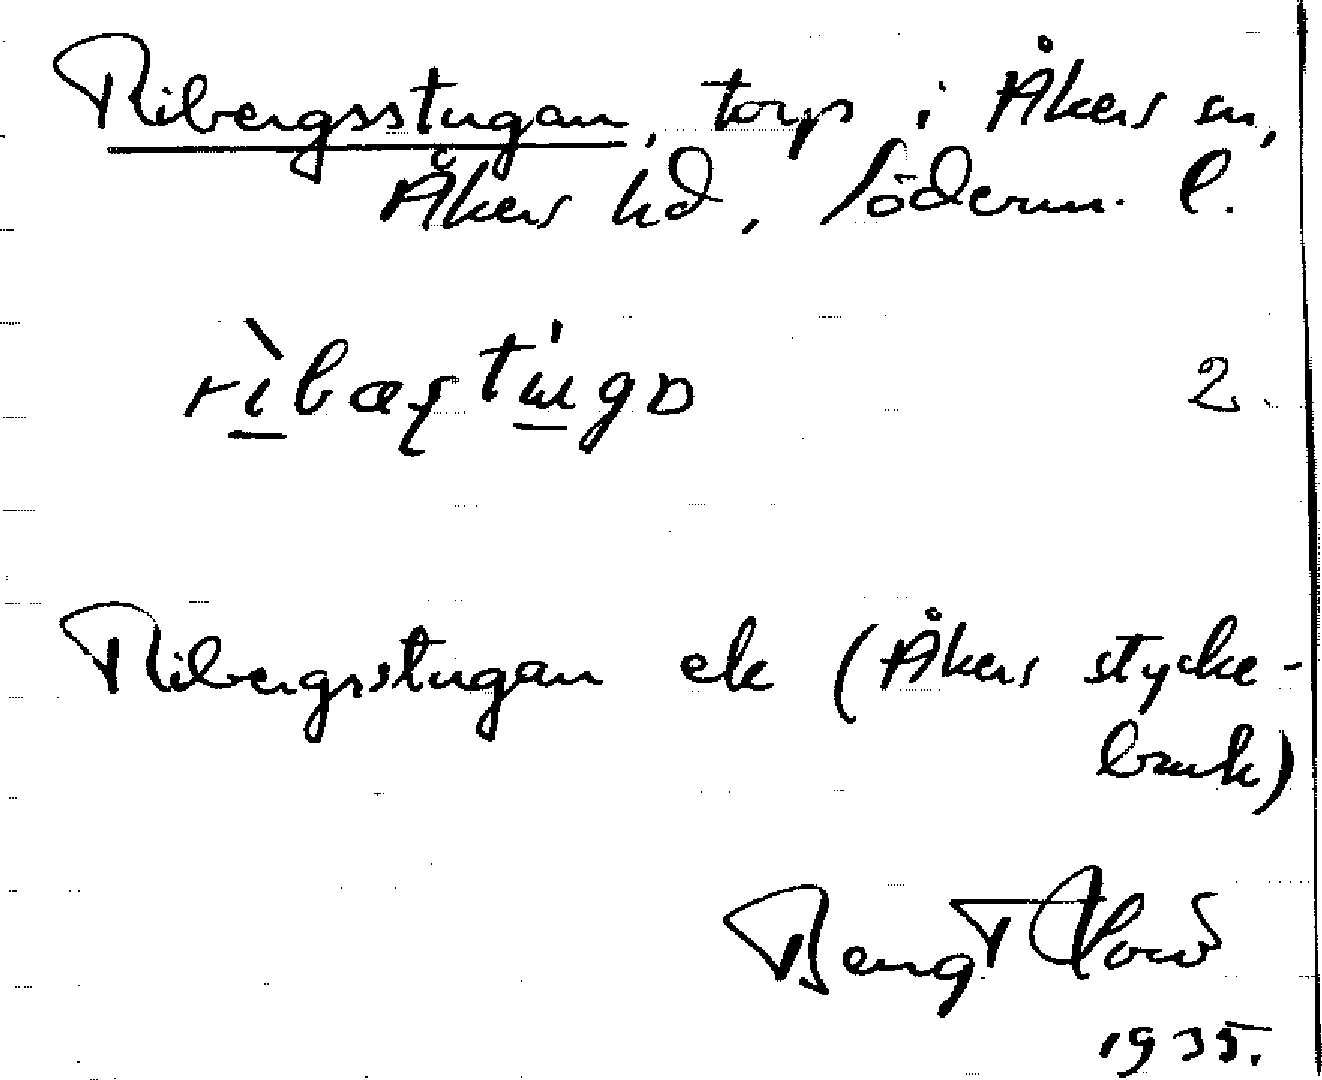 Ribergsstugan, torp i Åkers sn,
Åkers hd, Söderm. l.
2.
Ribergsstugan ek (Åkers stycke-
bruk)
Bengt
1935.